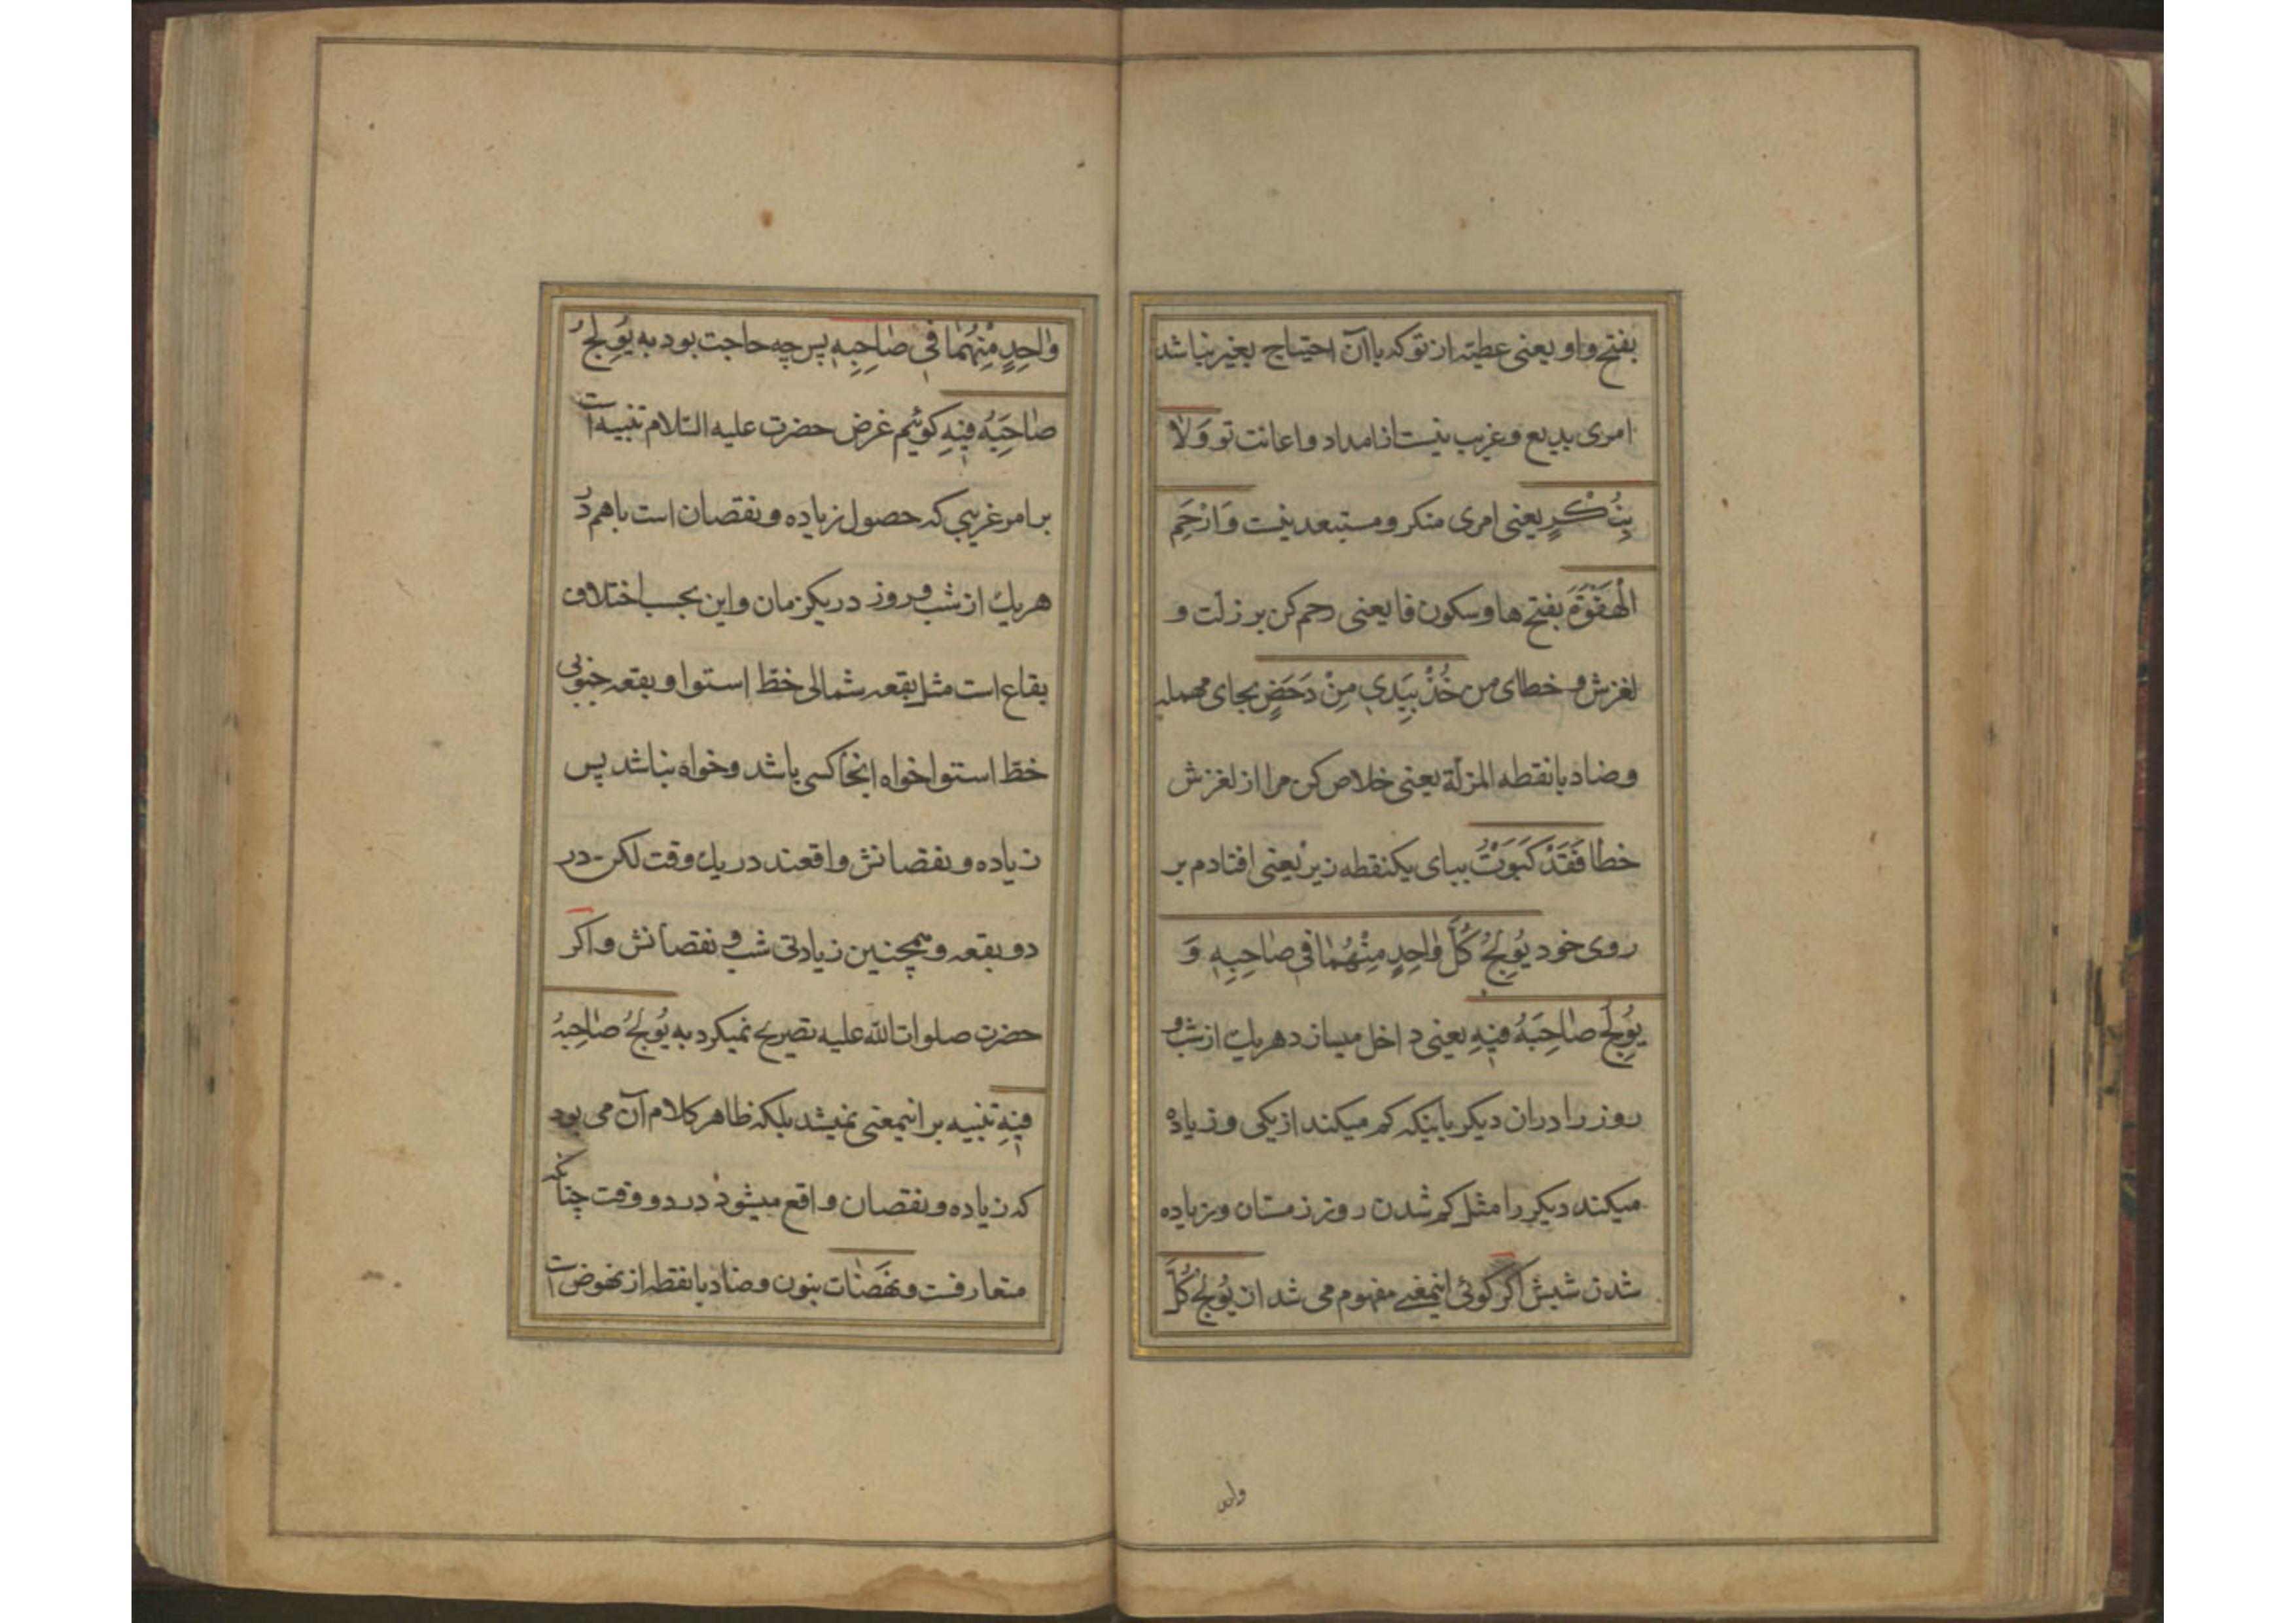 بفتح واو یعنی عطیته از تو که باآن احتیاج بغیر نباشد
امری بدیع و غریب نیست از امداد و اعانت تو وَلا
بِنُكْرٍ یعنی امری منکر و مستبعد نیست وَارْحَمِ
الْهَفْوَةَ بفتح ها و سکون فا یعنی رحم کن بر زلت و
لغزش و خطای من خُذْ بِیَدي مِنْ دَحَضٍ بحای مهمله
و ضاد با نقطه المزلّة یعنی خلاص کن مرا از لغزش
خطا فَقَدْ كَبَوْتُ ببای یکنقطه زیر یعنی افتادم بر
روی خود یُولِجُ كُلَّ وٰاحِدٍ مِنْهُمٰا في صٰاحِبِهِ وَ
یُولِجُ صٰاحِبَهُ فیهِ یعنی داخل میسازد هر یك از شب و
روز را در ان دیکر باینکه کم میکند از یکی و زیاده
میکند دیکر را مثل کم شدن روز زمستان و زیاده
شدن شبش اکر کوئی اینمعنے مفهوم می شد از یُولِجُ كُلَّ
واحد
وٰاحِدٍ مِنْهُمٰا في صٰاحِبِهِ پس چه حاجت بود به یُولِجُ
صٰاحِبَهُ فیهِ کوئیم غرض حضرت علیه السّلام تنبیه است
بر امر غریبی که حصول زیاده و نقصان است باهم در
هر یك از شب و روز در یکزمان و این بحسب اختلاف
بقاع است مثل بقعه شمالی خطّ استوا و بقعه جنوبی
خطّ استوا خواه انجا کسی باشد و خواه نباشد پس
زیاده و نقصانش واقعند در یك وقت لکن در
دو بقعه و همچنین زیادتی شب و نقصانش و اکر
حضرت صلوات الله علیه تصریح نمیکرد به یُولِجُ صٰاحِبَهُ
فیهِ تنبیه بر اینمعنی نمیشد بلکه ظاهر کلام آن می بود
که زیاده و نقصان واقع میشود در دو وقت چنانکه
متعارفست و نَهَضٰات بنون و ضاد با نقطه از نهوض است